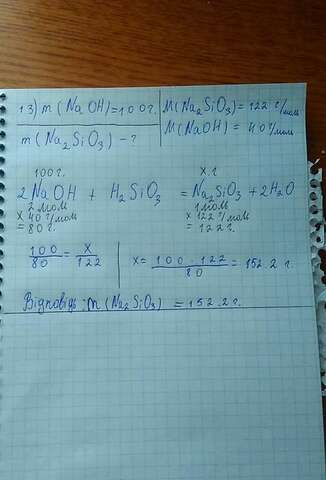 13) m(NaOH)=100г. M(Na₂SiO₃)=122 г/моль
m(Na₂SiO₃)-? M(NaOH)=40г/моль
100г. X г
2NaOH + H₂SiO₃ = Na₂SiO₃ + 2H₂O
2моль 1моль
x 40г/моль x 122г/моль
= 80г. = 122г.
100/80 = x/122 x = 100 · 122/80 = 152.2 г.
Відповідь: m(Na₂SiO₃) = 152.2г.